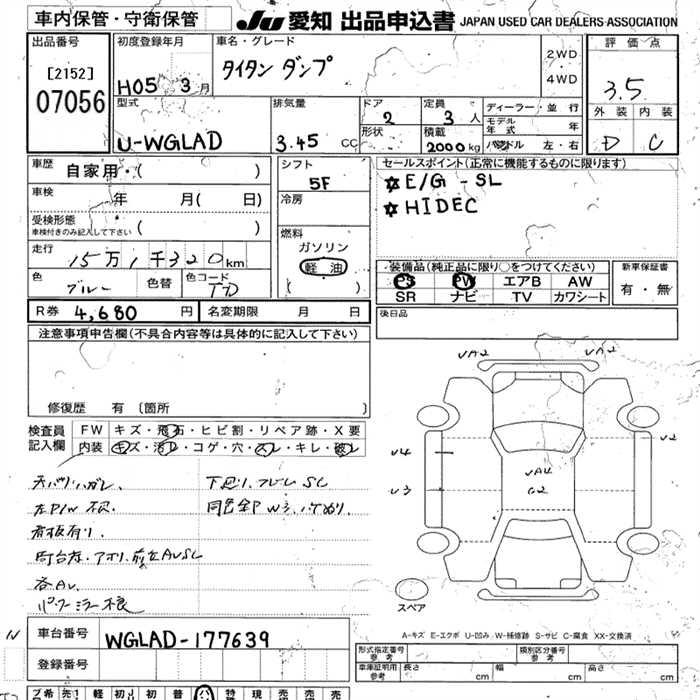 車内保管・守衛保管
JU 愛知 出品申込書 JAPAN USED CAR DEALERS ASSOCIATION
出品番号
[2152]
07056
初度登録年月
H05 3月
車名・グレード
タイタン ダンプ
2WD
4WD
評価点
3.5
外装 内装
D C
型式
U-WGLAD
排気量
3.45 cc
ドア
2
形状
定員
3人
積載
2000kg
ディーラー・並行
モデル年式 年
ハンドル 左・右
車歴
自家用・( )
車検
年 月( 日)
受検形態
車検付きのみ記入して下さい
( )
走行
15万1千320km
色
ブルー
色替
色コード
TD
シフト
5F
冷房
燃料
ガソリン
軽油
( )
セールスポイント(正常に機能するものに限ります)
☆E/G -SL
☆HIDEC
装備品(純正品に限り○をつけてください)
PS PW エアB AW
SR ナビ TV カワシート
新車保証書
有・無
後日品
R券 4,680円
名変期限 月 日
注意事項申告欄(不具合内容等は具体的に記入して下さい)
修復歴 有 〔箇所 〕
検査員
記入欄
FW キズ・飛石・ヒビ割・リペア跡・X要
内装 キズ・汚レ・コゲ・穴・スレ・キレ・破レ
天バリハガレ
左P/W 不良
看板有り
各AU
パワーミラー不良
下廻り、フレームSC
同色全P W3、ハケぬり
UA2
UA2
U4
U3
U2
UA4
G2
スペア
A-キズ E-エクボ U-凹み W-補修跡 S-サビ C-腐食 XX-交換済
車台番号
WGLAD-177639
登録番号
形式指定番号
参考
類別区分番号
参考
車庫証明用
参考
長さ cm
幅 cm
高さ cm